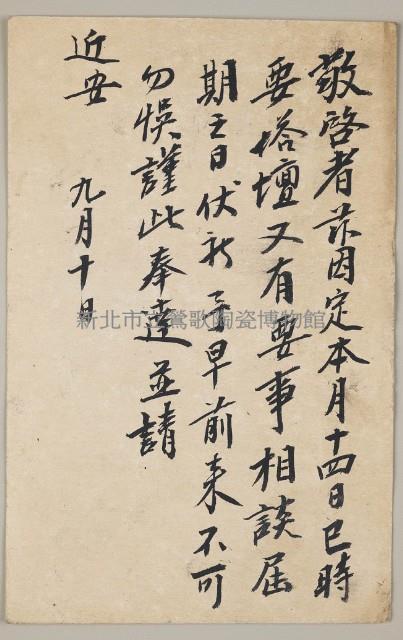 敬啓者茲因定本月十四日巳時
要搭壇又有要事相談屆
期日伏祈早前来不可
勿悞謹此奉達並請
近安
九月十日
新北市立鶯歌陶瓷博物館